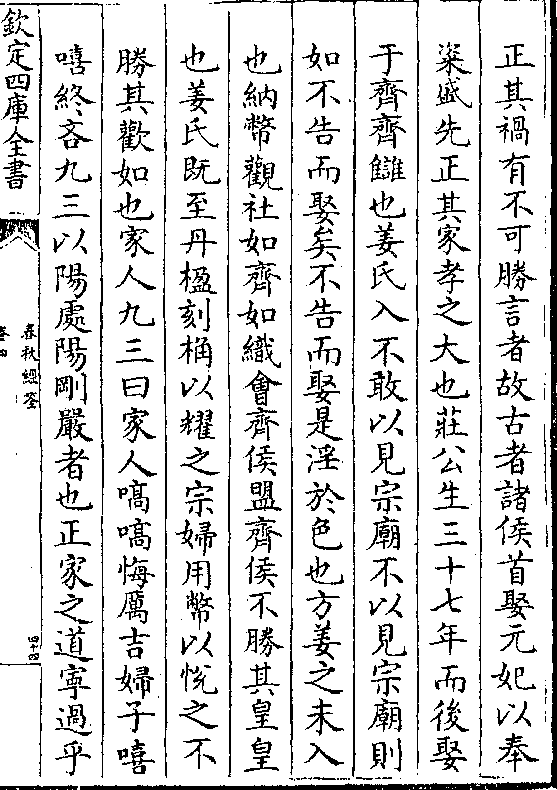 正其禍有不可勝言者故古者諸侯首娶元妃以奉
粢盛先正其家孝之大也莊公生三十七年而後娶
于齊齊讎也姜氏入不敢以見宗廟不以見宗廟則
如不告而娶矣不告而娶是淫於色也方姜之未入
也納幣觀社如齊如織會齊侯盟齊侯不勝其皇皇
也姜氏既至丹楹刻桷以耀之宗婦用幣以悅之不
勝其歡如也家人九三曰家人嗃嗃悔厲吉婦子嘻
嘻終吝九三以陽處陽剛嚴者也正家之道寧過乎
欽定四庫全書
春秋經筌
卷四
四十四